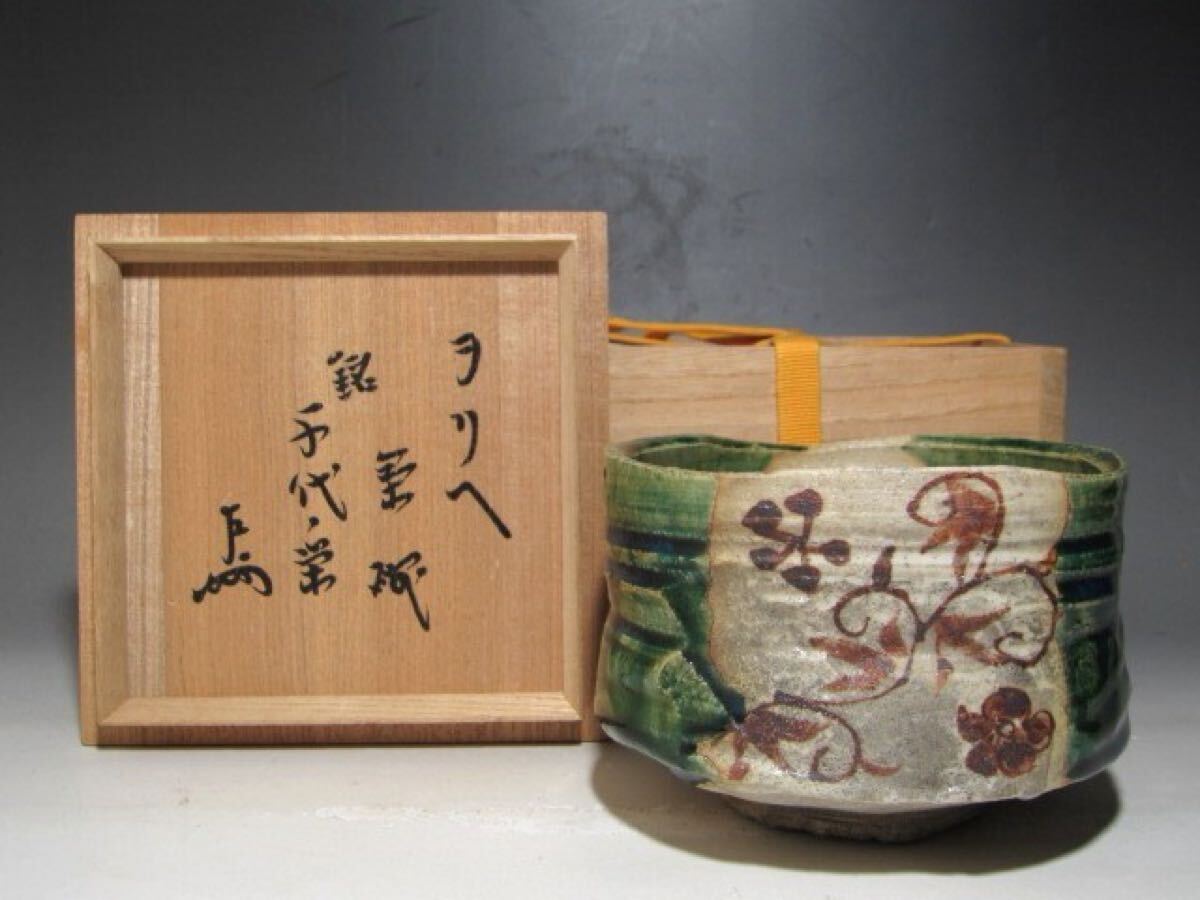 ヲリヘ
茶碗
銘
千代ノ栄